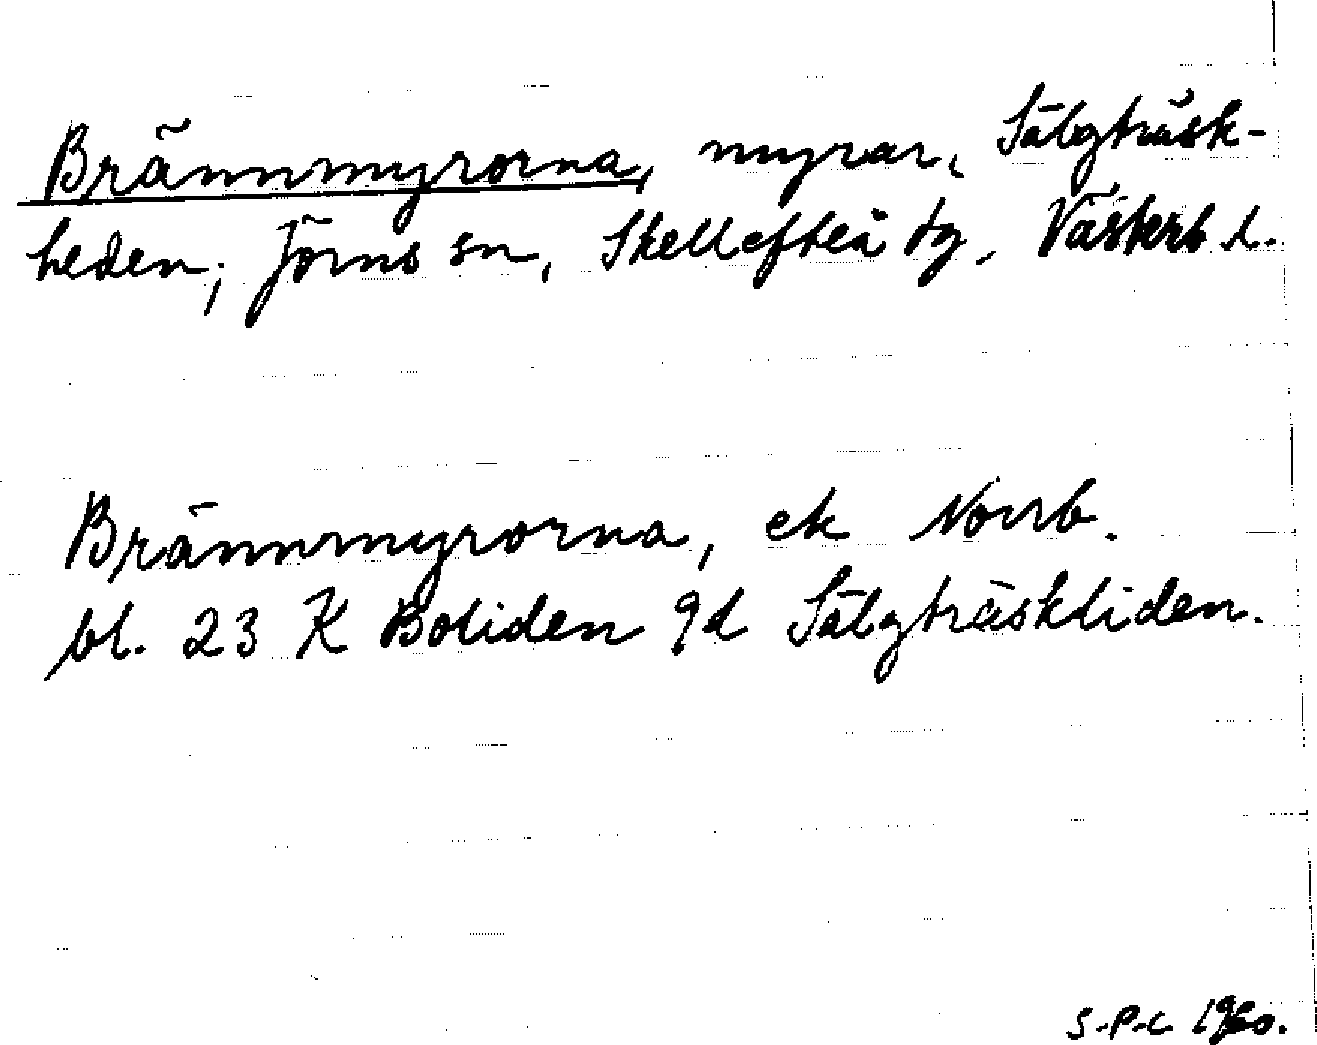 Brännmyrorna, myrar, Sälgträsk-
heden, Jörns sn, Skellefteå tg, Västerb l.
Brännmyrorna, ek Norrb.
bl. 23 K Boliden 9d Sälgträskliden.
S.-P.-L. 1960.